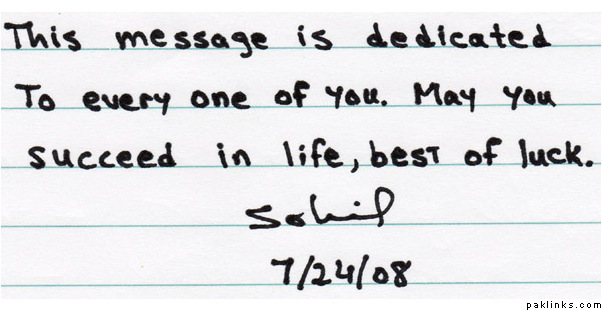 This message is dedicated
To every one of you. May you
succeed in life, best of luck.
Sohil
7/24/08
paklinks.com